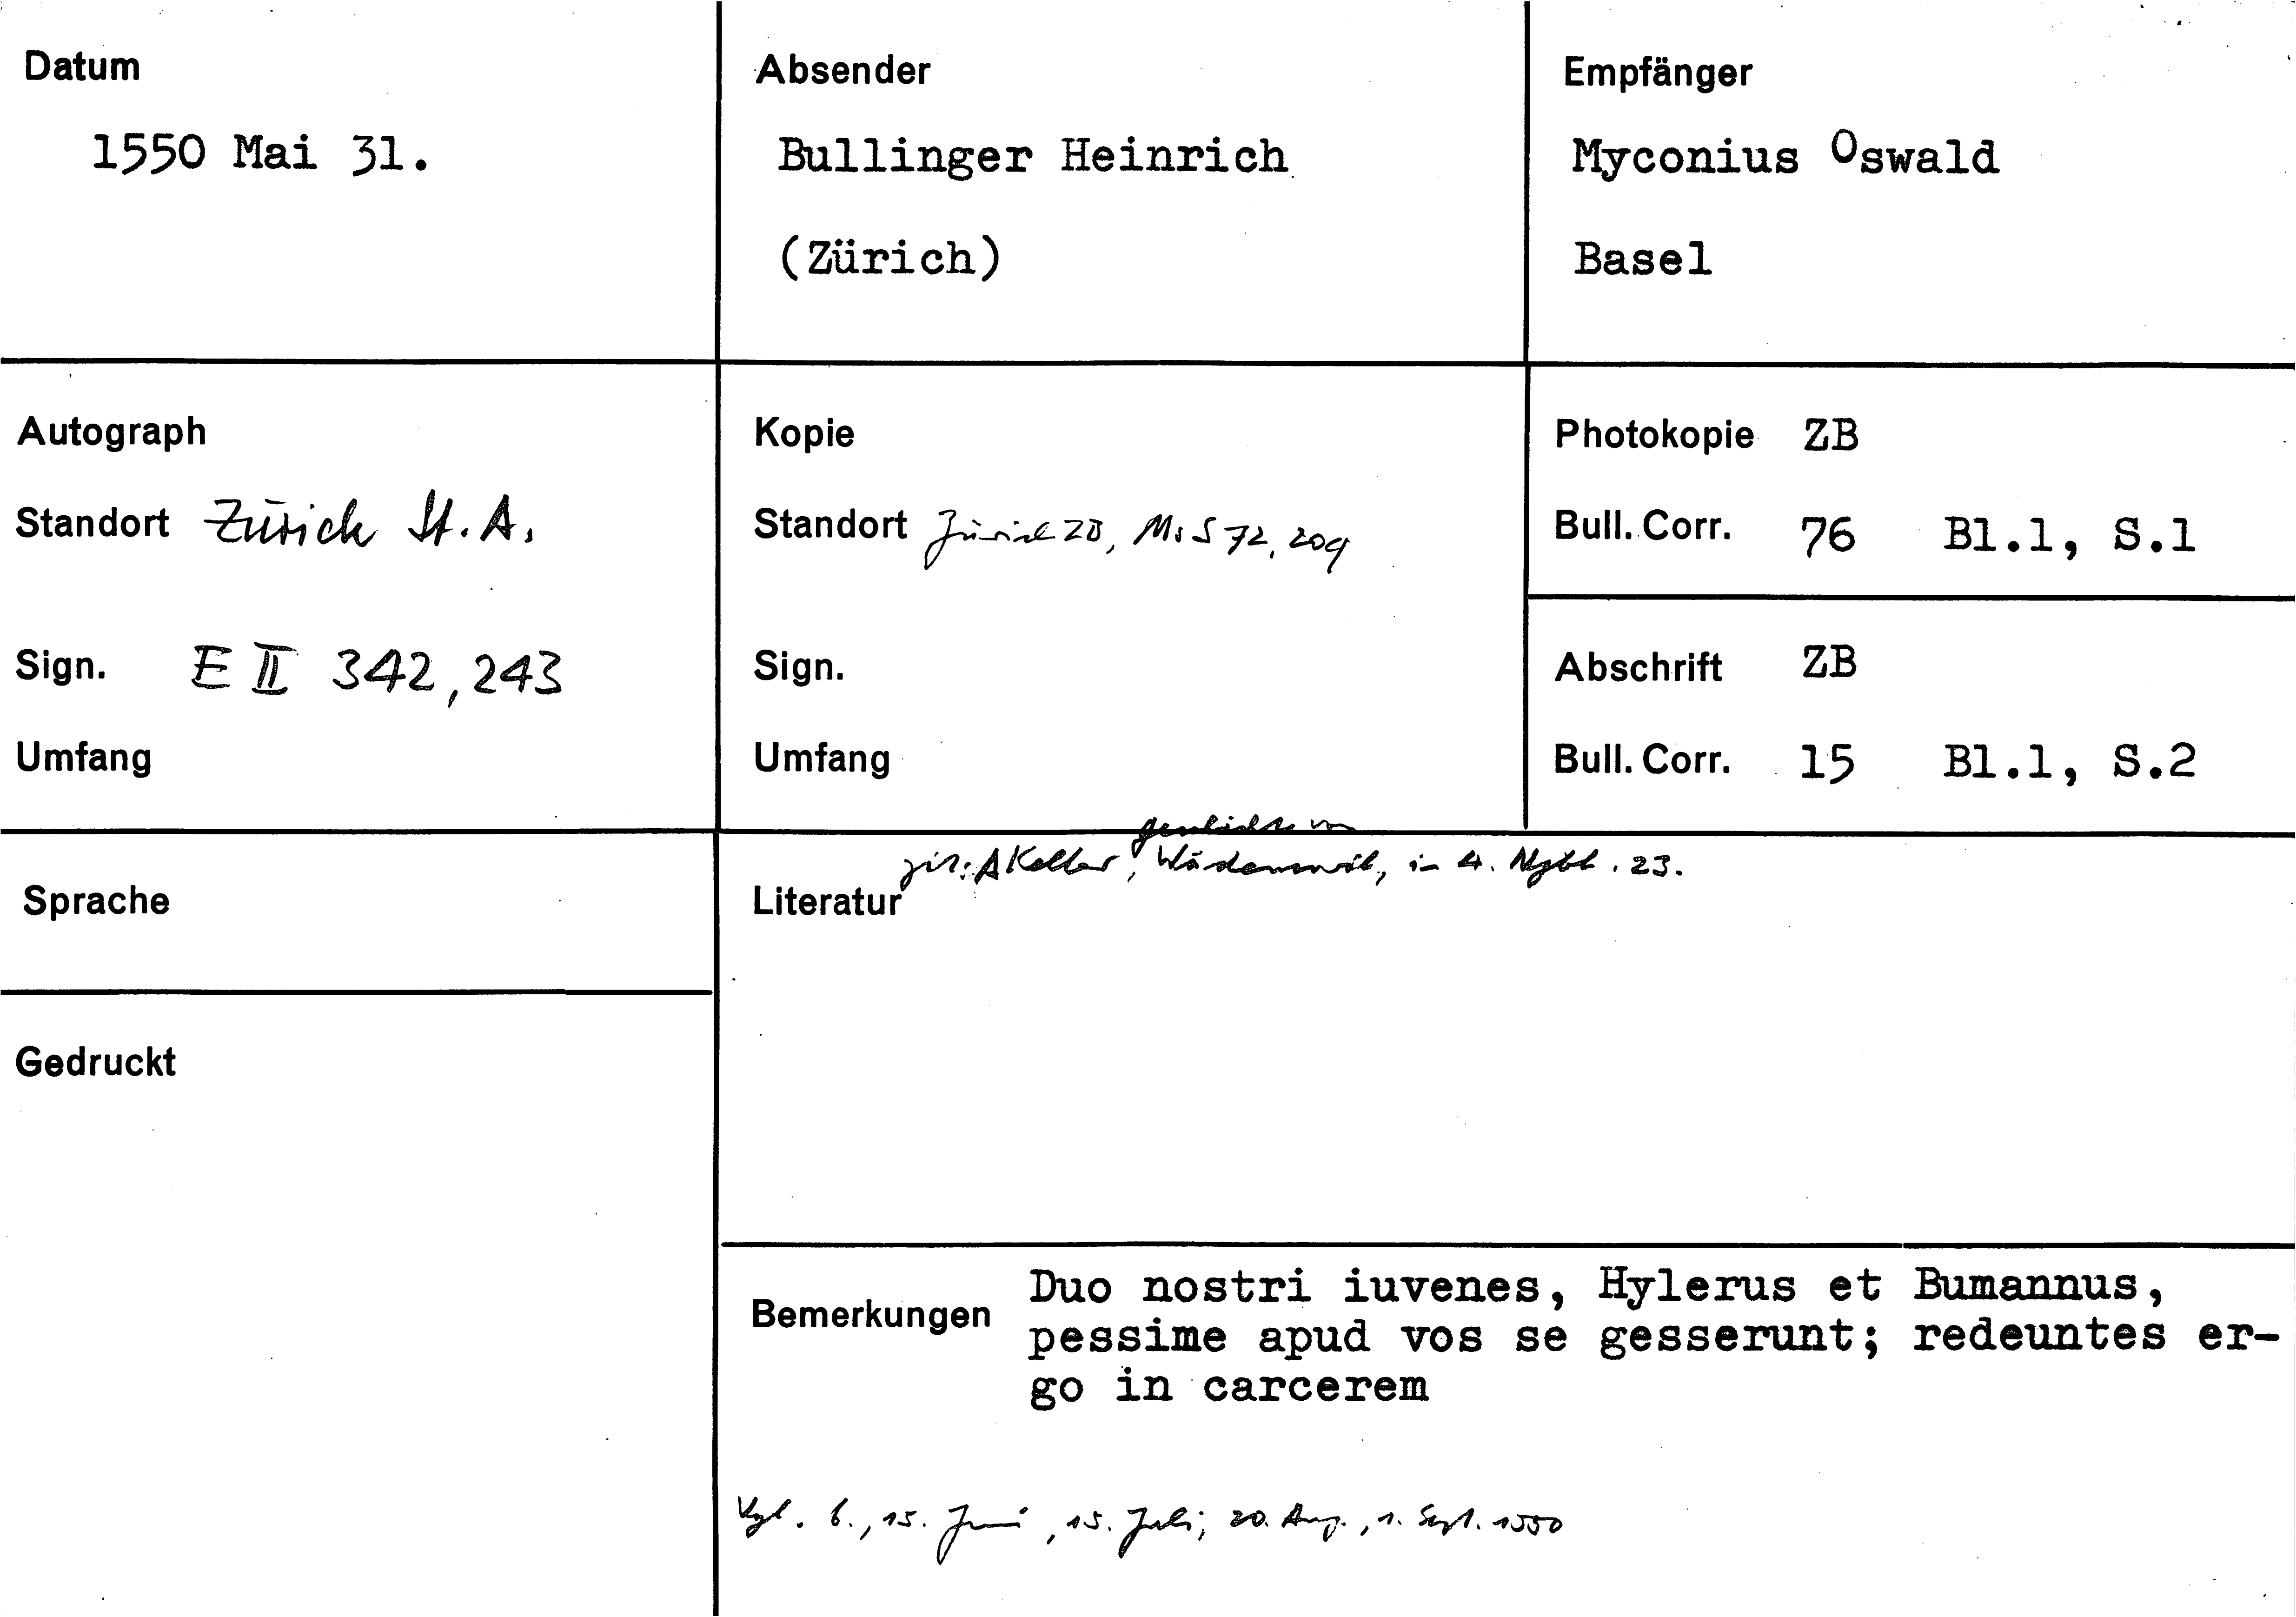 Datum
1550 Mai 31.
Absender
Bullinger Heinrich
(Zürich)
Empfänger
Myconius Oswald
Basel
Autograph
Standort Zürich St. A.
Sign. E II 342, 243
Umfang
Kopie
Standort Zürich ZB, Ms S 72, 209
Sign.
Umfang
Photokopie ZB
Bull. Corr. 76 Bl.1, S.1
Abschrift ZB
Bull. Corr. 15 Bl.1, S.2
Sprache
Gedruckt
geschichte von
zit: A Keller, Wädenswil, in 4. Njbl. 23.
Literatur
Bemerkungen
Duo nostri iuvenes, Hylerus et Bumannus,
pessime apud vos se gesserunt; redeuntes er-
go in carcerem
Vgl. 6., 15. Juni, 15. Juli; 20. Aug., 1. Sept. 1550